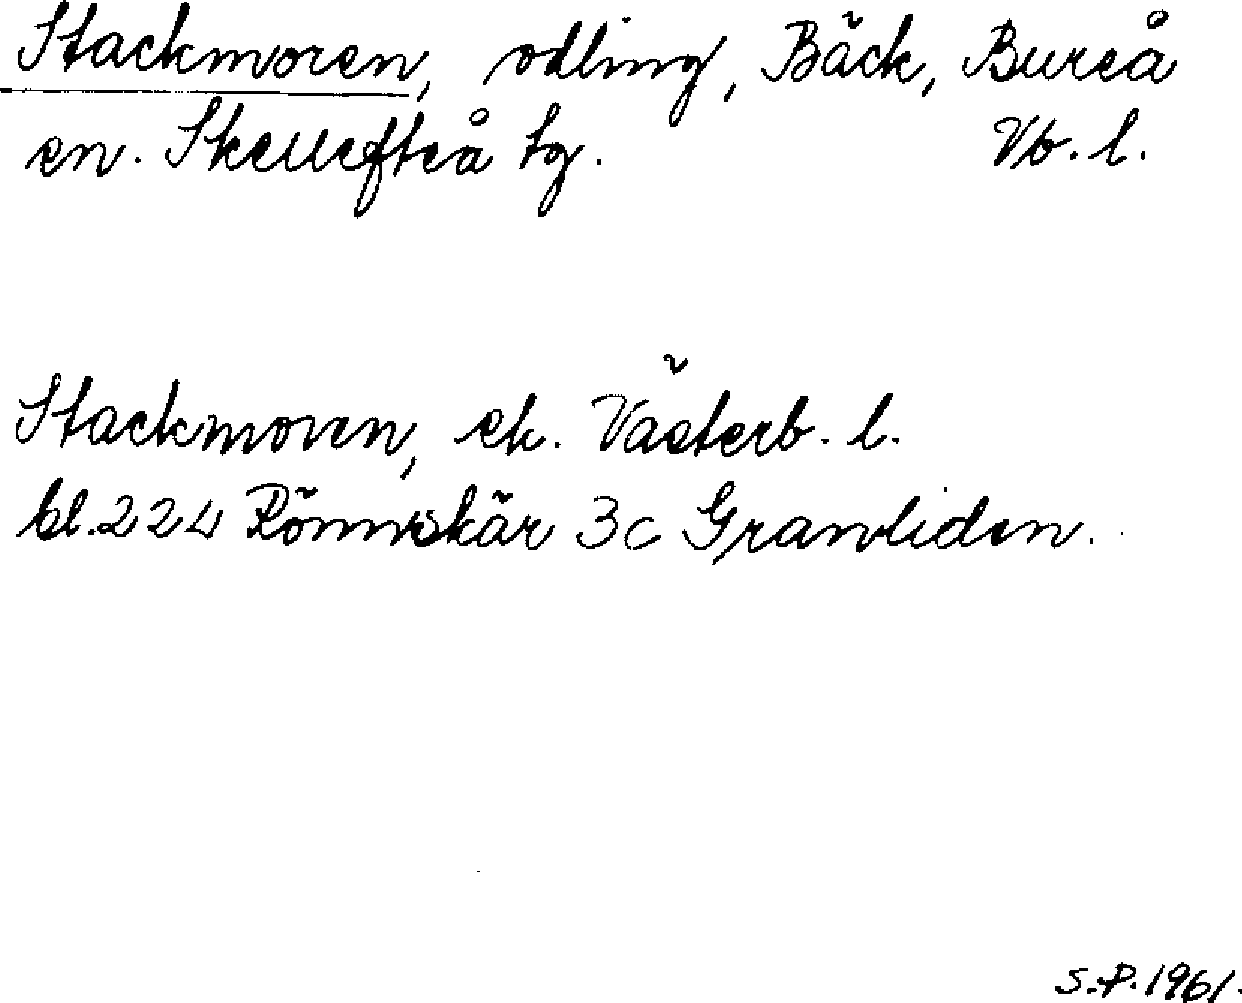 Stackmoren, odling, Bäck, Bureå
sn. Skellefteå tg. Vb. l.
Stackmoren, ek. Västerb. l.
bl. 224 Rönnskär 3c Granliden.
S.P. 1961.